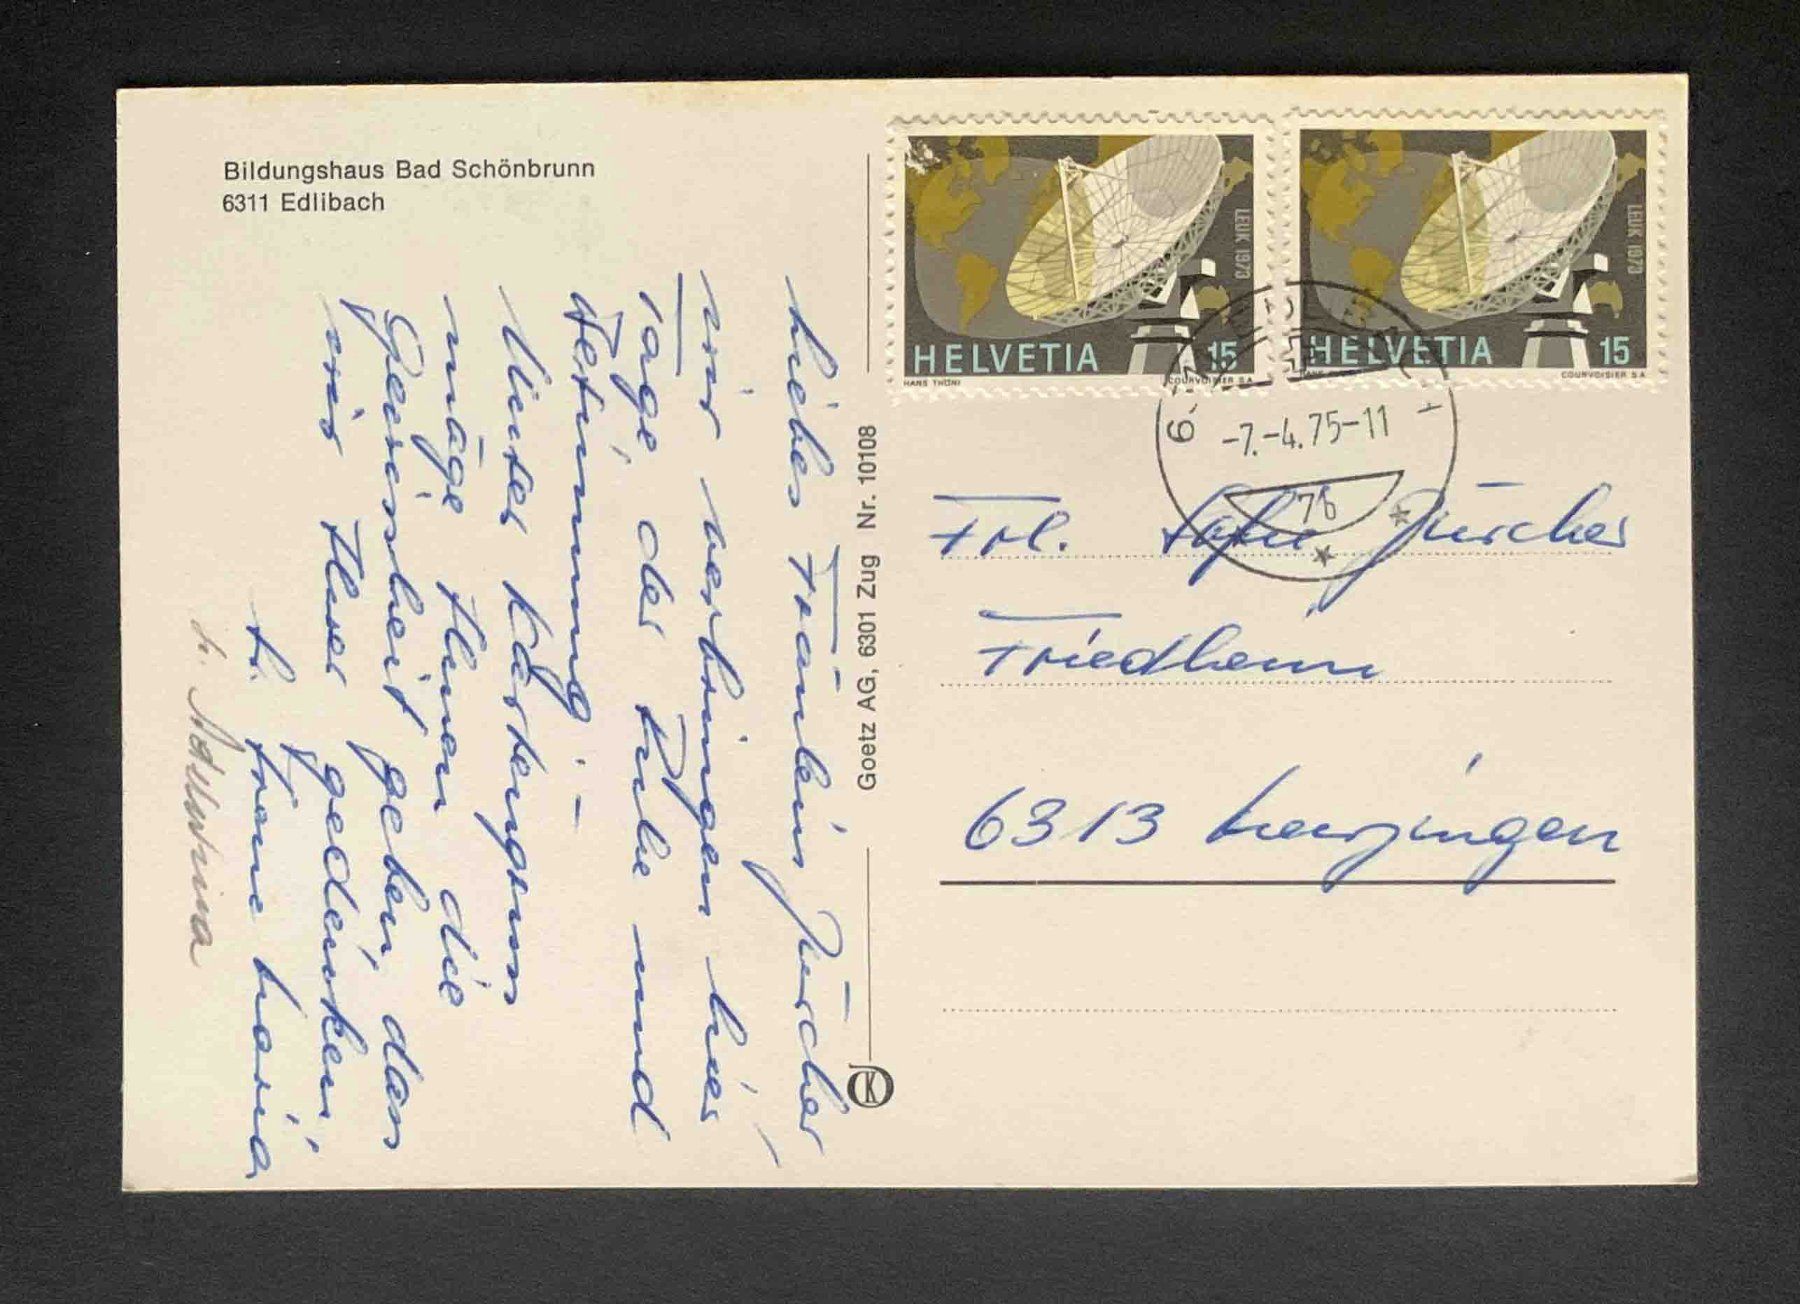 Bildungshaus Bad Schönbrunn
6311 Edlibach
Liebes Fräulein Zürcher
wir verbringen hier
Tage der Ruhe und
Besinnung. –
Unser Kärtengruss
möge Ihnen die
Gewissheit geben, dass
wir Ihrer gedenken!
Sr. Maria
Sr.
Goetz AG, 6301 Zug Nr. 10108
HELVETIA 15
LEUK 1973
HANS THÖNI
COURVOISIER S.A.
HELVETIA 15
LEUK 1973
COURVOISIER S.A.
-7.-4.75-11
7b
Frl. Sofie Zürcher
Friedheim
6313 Menzingen